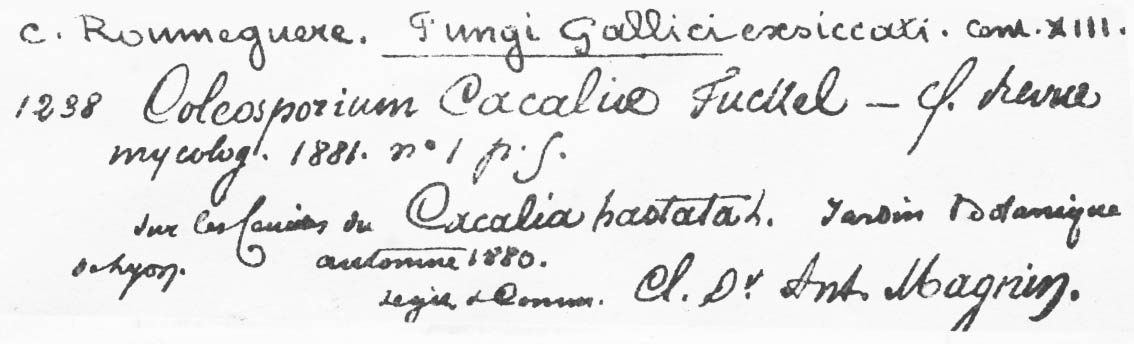 C. Roumeguere. Fungi Gallici exsiccati. Cent. XIII.
1238 Coleosporium Cacaliæ Fuckel — Cf. Revue
mycolog. 1881. n° 1 p. 5.
sur les feuilles du Cacalia hastata L. Jardin Botanique
de Lyon. automne 1880.
legit & Comm. Cl. Dr. Ant. Magnin.